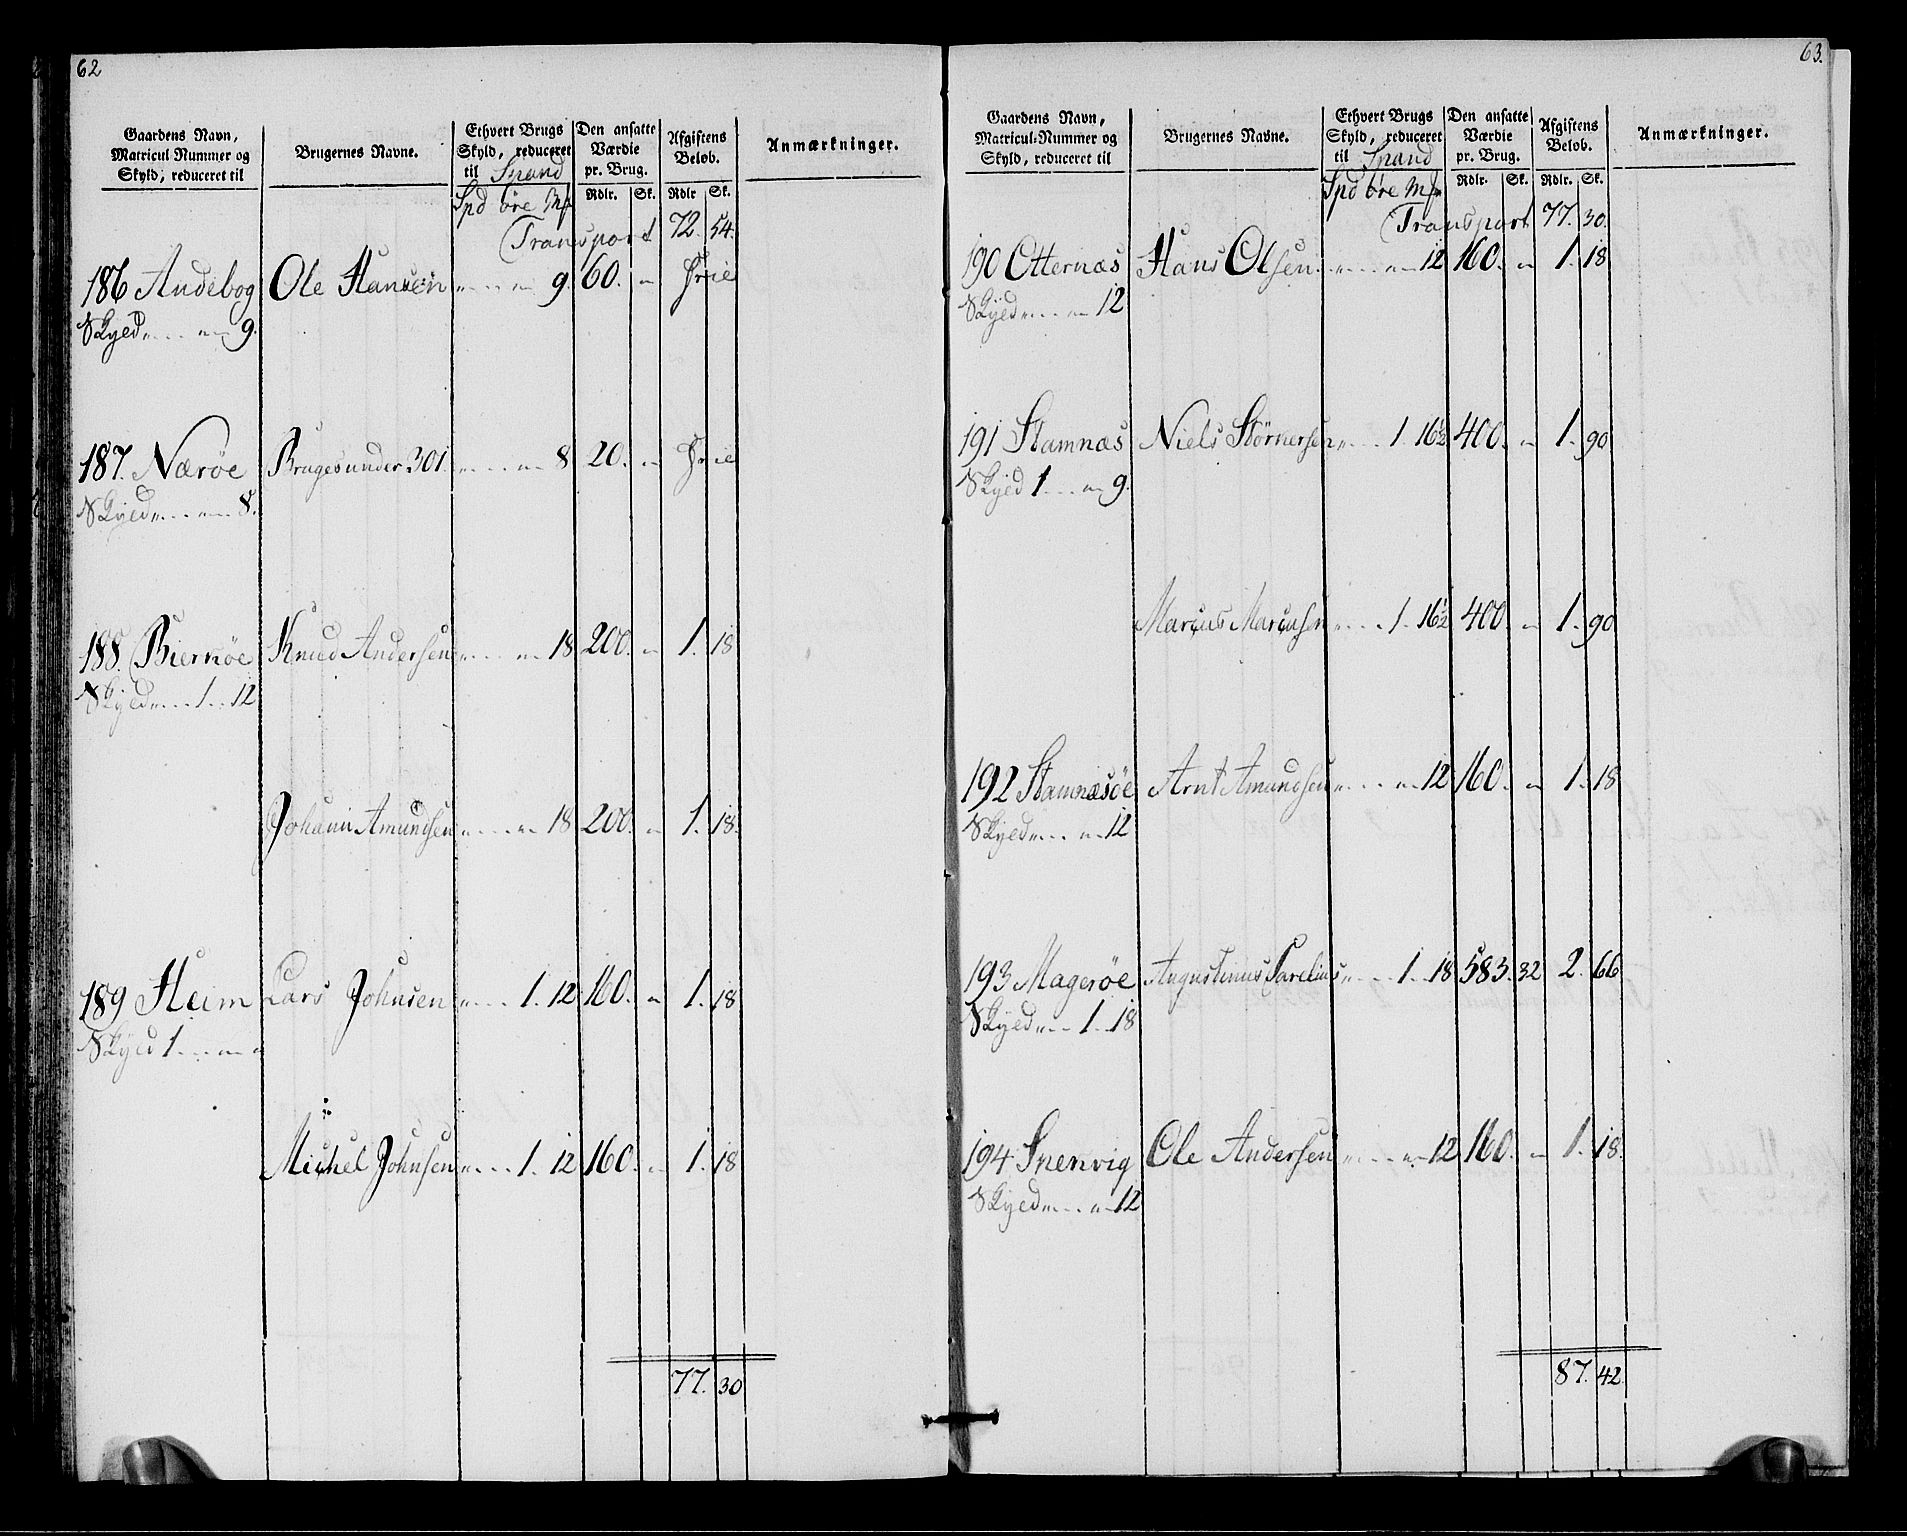 62
Gaardens Navn, Matricul Nummer og Skyld, reduceret til
Brugernes Navne.
Ethvert Brugs Skyld, reduceret til Spand
Den ansatte Værdie pr. Brug.
Afgiftens Beløb.
Anmærkninger.
Spd øre Mk
Rdlr. Sk. Rdlr Sk.
Transport 72. 54.
186 Andebog Ole Hansen „ „ 9 60. „ Frie
Skyld „ „ 9.
187. Nærøe Bruges under 301. „ „ 8 20. „ Frie
Skyld „ „ 8.
188. Biernøe Knud Andersen „ „ 18 200. „ 1. 18
Skyld „ 1 „ 12
Johann Amundsen „ „ 18 200. „ 1. 18.
189 Heim Lars Johnsen „ 1. 12 160. „ 1. 18
Skyld 1 „ „
Michel Johnsen „ 1. 12 160. „ 1. 18
77. 30
63.
Gaardens Navn, Matricul-Nummer og Skyld, reduceret til
Brugernes Navne.
Ethvert Brugs Skyld, reduceret til Spand
Den ansatte Værdie pr. Brug.
Afgiftens Beløb.
Anmærkninger.
Spd øre Mk
Rdlr. Sk. Rdlr. Sk.
Transport 77. 30.
190 Otternæs Hans Olsen „ „ 12 160. „ 1. 18
Skyld „ „ 12
191 Stamnæs Niels Størkersen „ 1. 16½ 400. „ 1. 90
Skyld 1 „ 9.
Marcus Marcusen „ 1. 16½ 400. „ 1. 90
192 Stamnæsøe Arnt Amundsen „ „ 12 160. „ 1. 18
Skyld „ „ 12
193 Magerøe Augustinus Carelius „ 1. 18 583. 32 2. 66
Skyld „ 1. 18
194 Snenvig Ole Andersen „ „ 12 160. „ 1. 18.
Skyld „ „ 12
87. 42